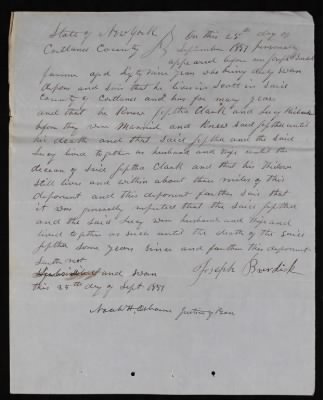 State of New York
Cortland County
On this 25th day of
September 1851 personally
appeared before me Joseph
farmer aged sixty nine years who being duly sworn
deposes and says that he lives in Scott in said
County of Cortland and has for many years
and that he knew Jeptha Clark and Lucy
before they were Married and knew said Jeptha until
his death and that said Jeptha and the said
Lucy lived together as husband and wife until the
decease of said Jeptha Clark and that his Widow
still lives and within about three miles of this
deponent and this deponent further says that
it was generally reputed that the said Jeptha
and the said Lucy were husband and wife and
lived together as such until the death of the said
Jeptha some years since and further this deponent
saith not
Subscribed and sworn
this 25th day of Sept 1851
Joseph Burdick
Noah H Osborne Justice of Peace